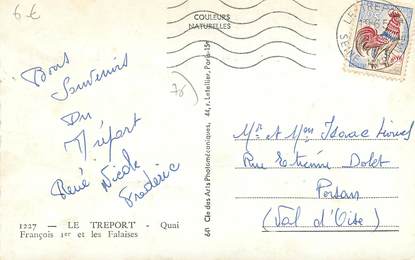 6 €
COULEURS
NATURELLES
Bons
Souvenirs
Du
Tréport
René Nicole
Frédéric
76
641 Cie des Arts Photomécaniques, 44, r. Letellier, Paris-15e
LE TREPORT
SEINE
Mr et Mme Isaac
Rue Etienne Dolet
Persan
(Val d'Oise)
1227 — LE TREPORT - Quai
François 1er et les Falaises